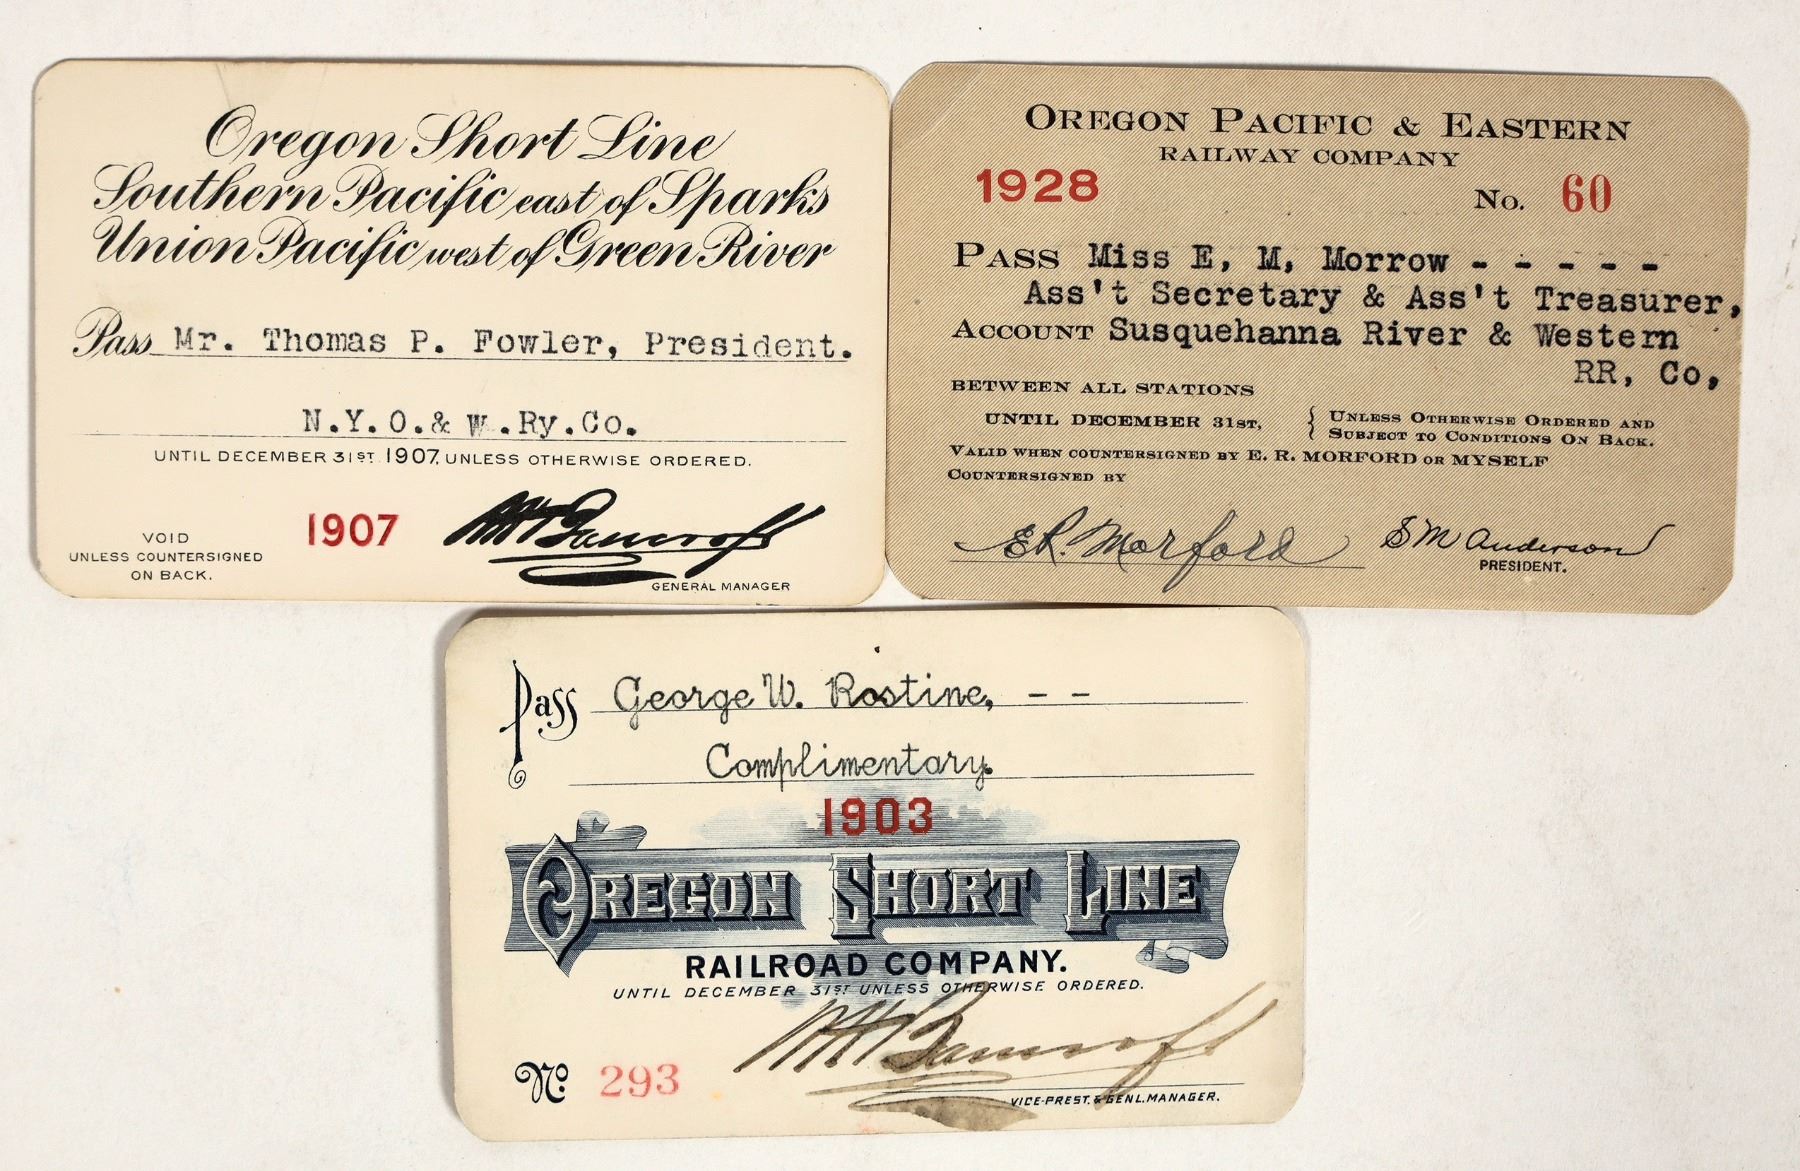 Oregon Short Line
Southern Pacific east of Sparks
Union Pacific west of Green River
Pass Mr. Thomas P. Fowler, President.
N.Y.O.& W.Ry.Co.
UNTIL DECEMBER 31ST 1907, UNLESS OTHERWISE ORDERED.
VOID
UNLESS COUNTERSIGNED
ON BACK.
1907
WH Bancroft
GENERAL MANAGER
OREGON PACIFIC & EASTERN
RAILWAY COMPANY
1928
No. 60
PASS Miss E, M, Morrow - - - - -
Ass't Secretary & Ass't Treasurer,
ACCOUNT Susquehanna River & Western
RR, Co,
BETWEEN ALL STATIONS
UNTIL DECEMBER 31ST, { UNLESS OTHERWISE ORDERED AND
SUBJECT TO CONDITIONS ON BACK.
VALID WHEN COUNTERSIGNED BY E. R. MORFORD OR MYSELF
COUNTERSIGNED BY
E.R. Morford
S M Anderson
PRESIDENT.
Pass George W. Rostine, - -
Complimentary.
1903
OREGON SHORT LINE
RAILROAD COMPANY.
UNTIL DECEMBER 31ST UNLESS OTHERWISE ORDERED.
No. 293
WH Bancroft
VICE-PREST. & GENL. MANAGER.